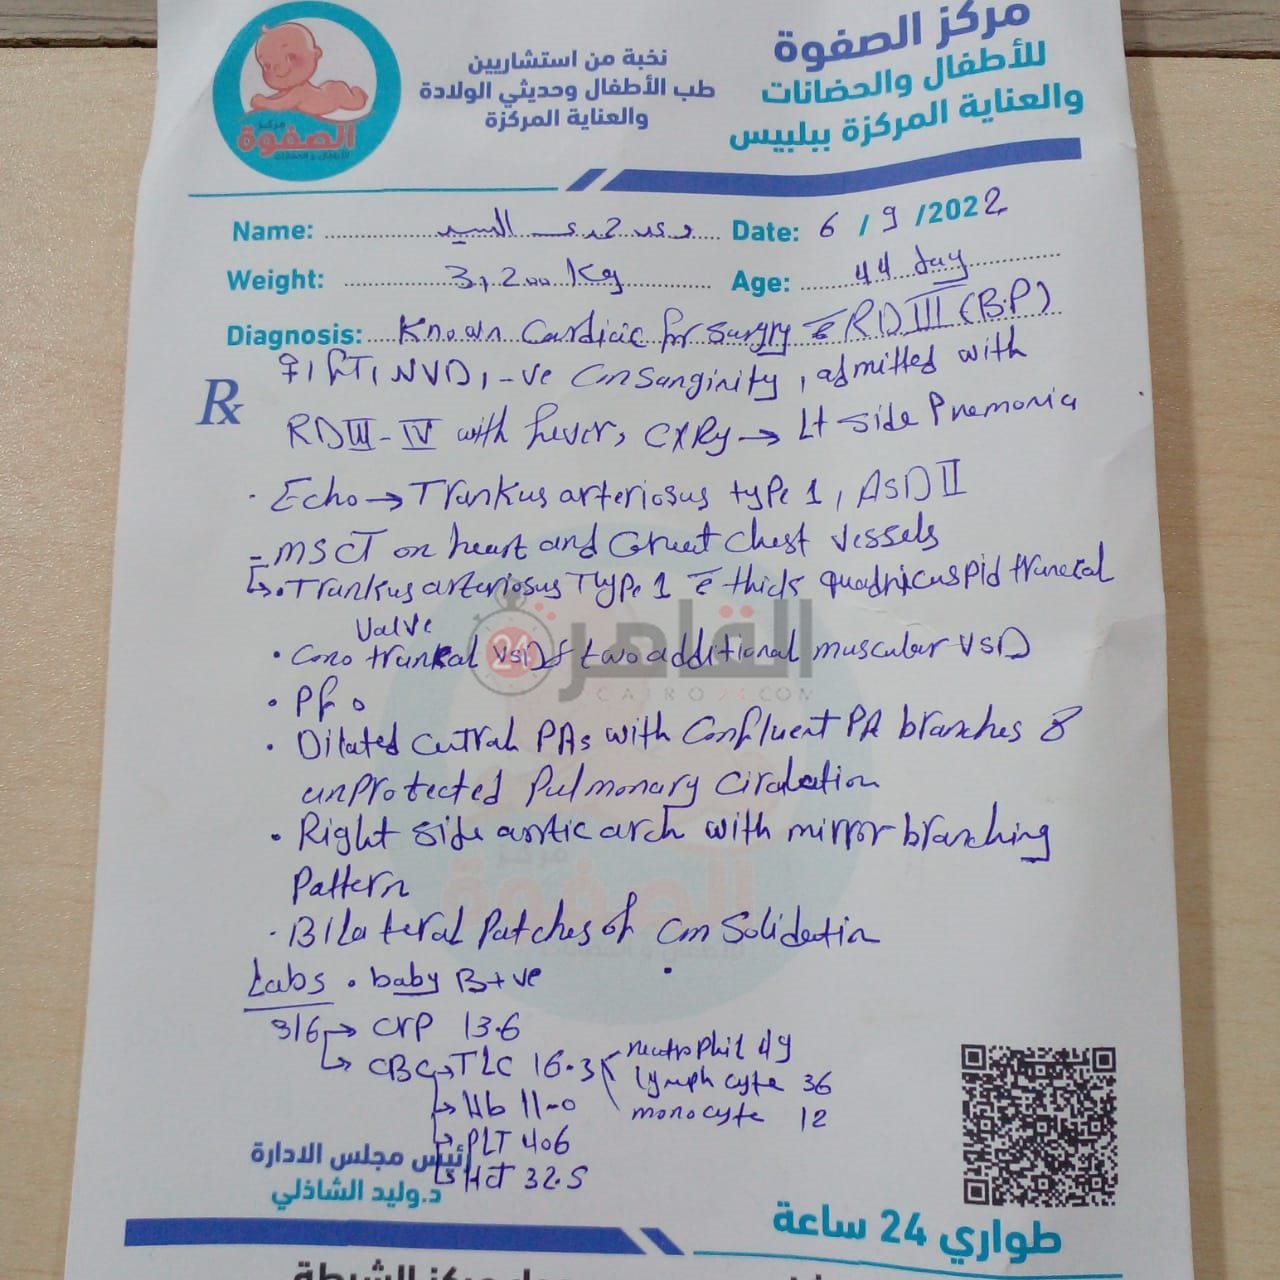 مركز الصفوة
للأطفال والحضانات
والعناية المركزة ببلبيس
نخبة من استشاريين
طب الأطفال وحديثي الولادة
والعناية المركزة
مركز
الصفوة
للأطفال و الحضانات
Name: حمدى السيد Date: 6 / 9 /2022
Weight: 3,200 Kg Age: 44 day
Diagnosis: Known Cardiac for Surgry c̄ RD III (B.P)
Rx
♀, FT, NVD, -ve Consanginity, admitted with
RD III - IV with fever, CXRy → Lt side Pnemonia
· Echo → Trankus arteriosus type 1, ASD II
- MSCT on heart and Great chest vessels
↳ · Trankus arteriosus Type 1 c̄ thick quadricuspid truncal
valve
· Cono truncal VSD & two additional muscular VSD
· PFO
· Dilated central PAs with Confluent PA branches &
unprotected Pulmonary Circulation
· Right side aortic arch with mirror branching
Pattern
· Bilateral Patches of Consolidation
القاهرة 24
CAIRO24.COM
مركز
الصفوة
للأطفال و الحضانات
Labs · baby B+ve
3/6 → CrP 13.6
↳ CBC → TLC 16.3 neutrophil 49
lymphocyte 36
monocyte 12
→ Hb 11.0
→ PLT 406
→ HCT 32.5
رئيس مجلس الادارة
د.وليد الشاذلي
طواري 24 ساعة